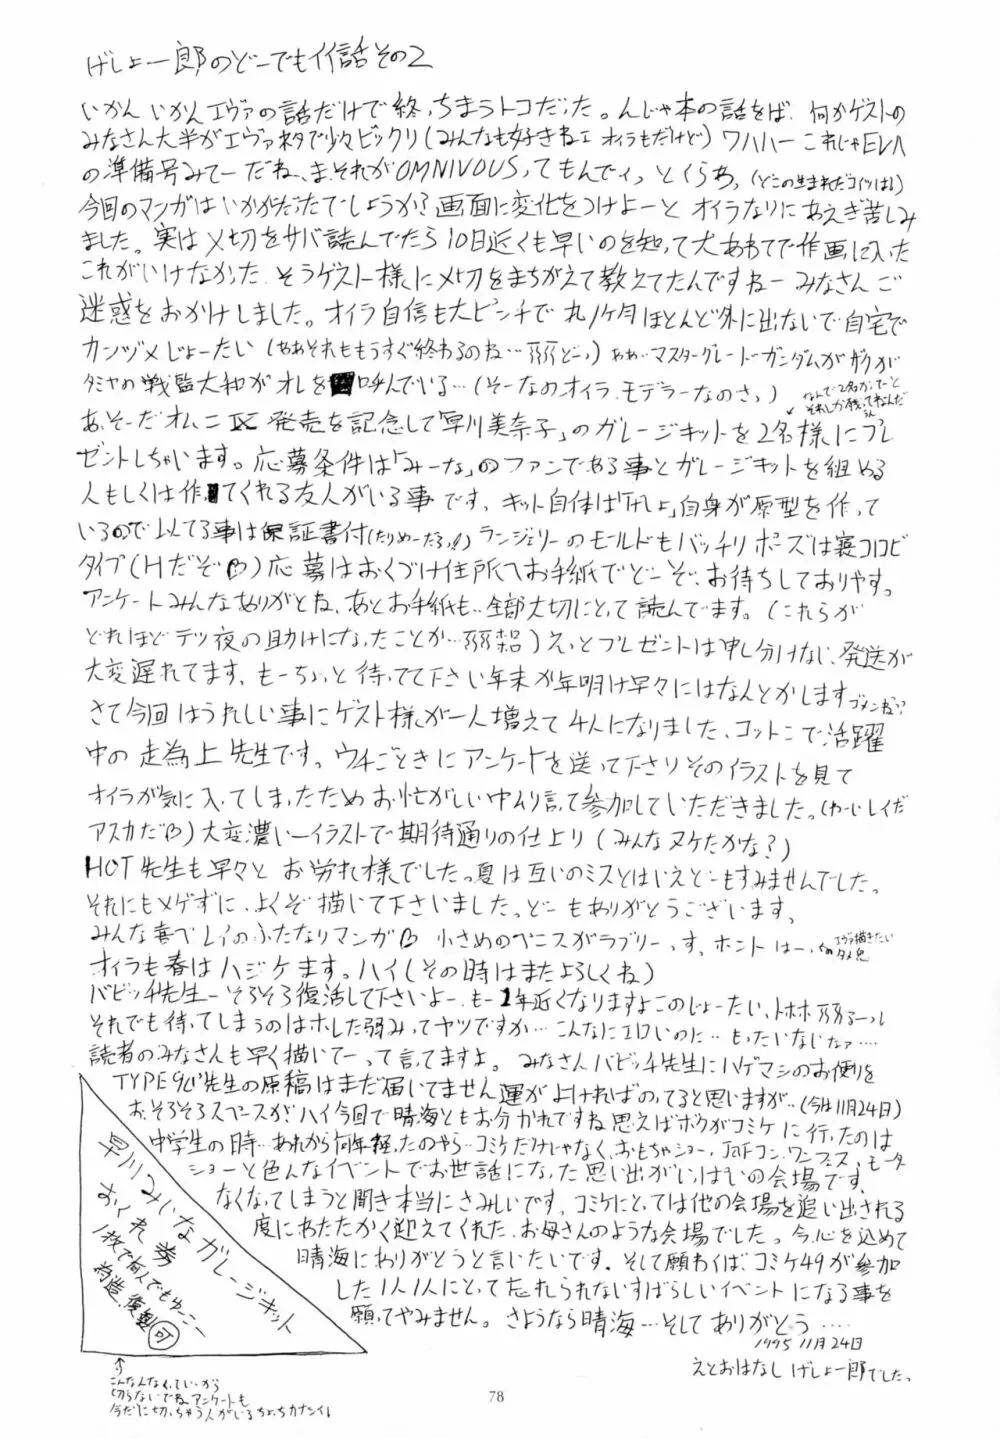 げしょ一郎のどーでもイイ話その2
いかん いかんエヴァの話だけで終っちまうトコだった。んじゃ本の話をば、何かゲストの
みなさん大半がエヴァネタで少々ビックリ(みんなも好きねェ オイラもだけど) ワハハー これじゃEVA
の準備号みてーだね、ま、それがOMNIVOUSってもんでィっ とくらぁ、(どこの生まれだコイツは!)
今回のマンガはいかがだったでしょうか? 画面に変化をつけよーと オイラなりにあえぎ苦しみ
ました。実は〆切をサバ読んでたら10日近くも早いのを知って大あわてで作画に入った
これがいけなかった、そうゲスト様に〆切をまちがえて教えてたんですねー みなさんご
迷惑をおかけしました。オイラ自信も大ピンチで丸1ヶ月ほとんど外に出ないで自宅で
カンヅメじょーたい (ああそれももうすぐ終わるのね… どーっ) ああ…マスターグレードガンダムがガウが
タミヤの戦艦大和がオレを呼んでいる…(そーなのオイラ、モデラーなのさっ)
なんで2名かってーと
それしか残ってねんだ
あ、そーだオムニⅨ発売を記念して「早川美奈子」のガレージキットを2名様にプレ
ゼントしちゃいます。応募条件は「みーな」のファンである事とガレージキットを組める
人もしくは作ってくれる友人がいる事です、キット自体は「げしょ」自身が原型を作って
いるので似てる事は保証書付(たりめーだろっ!) ランジェリーのモールドもバッチリ ポーズは寝コロビ
タイプ(Hだぞ♡) 応募はおくづけ住所へお手紙でどーぞ、お待ちしておりやす。
アンケートみんなありがとね、あとお手紙も…全部大切にとって読んでます。(これらが
どれほどテツ夜の助けになったことか…) えっとプレゼントは申し分けない、発送が
大変遅れてます、もーちょっと待ってて下さい年末か年明け早々にはなんとかします ゴメンね??
さて今回はうれしい事にゲスト様が一人増えて4人になりました、コットンコミックで活躍
中の走為上先生です。ウチごときにアンケートを送って下さりそのイラストを見て
オイラが気に入ってしまったためお忙がしい中ムリ言って参加していただきました。(わーいレイだ
アスカだ♡) 大変濃いーイラストで期待通りの仕上り (みんなヌケたかな?)
HOT先生も早々と お労れ様でした。夏は互いのミスとはいえどーもすみませんでした。
それにもメゲずに、よくぞ描いて下さいました。どーもありがとうございます。
みんな喜べレイのふたなりマンガ♡ 小さめのペニスがラブリーっす。ホント はー、
エヴァ描きたい
オイラも春はハジケます。ハイ(その時はまたよろしくね)
バビッチ先生ーそろそろ復活して下さいよー、もー1年近くなりますよこのじょーたい、トホホ
それでも待ってしまうのはホレた弱みってヤツですか…こんなにエロいのに…もったいないなァ…
読者のみなさんも早く描いてーって言ってますよ。みなさんバビッチ先生にハゲマシのお便りを
TYPE90先生の原稿はまだ届いてません運がよければのってると思いますが…(今は11月24日)
お、そろそろスペースが、ハイ今回で晴海ともお分かれですね思えばボクがコミケに行ったのは
中学生の時…あれから何年経ったのやら…コミケだけじゃなく、おもちゃショー、JAFコン、ワンフェス、モーター
ショーと色んなイベントでお世話になった思い出がいっぱいの会場です。
なくなってしまうと聞き本当にさみしいです。コミケにとっては他の会場を追い出される
度にあたたかく迎えてくれた、お母さんのような会場でした。今、心を込めて
晴海にありがとうと言いたいです。そして願わくば、コミケ49が参加
した1人1人にとって忘れられないすばらしいイベントになる事を
願ってやみません。さようなら晴海…そしてありがとう…
1995 11月24日
えとおはなし げしょ一郎でした。
早川みいなガレージキット
おくれ券
1枚で何んでもゆーこー
為造、復製可
こんなんなくっていいから
切らないでね、アンケートも
今だに切っちゃう人がいるちょっちカナシイ!
78